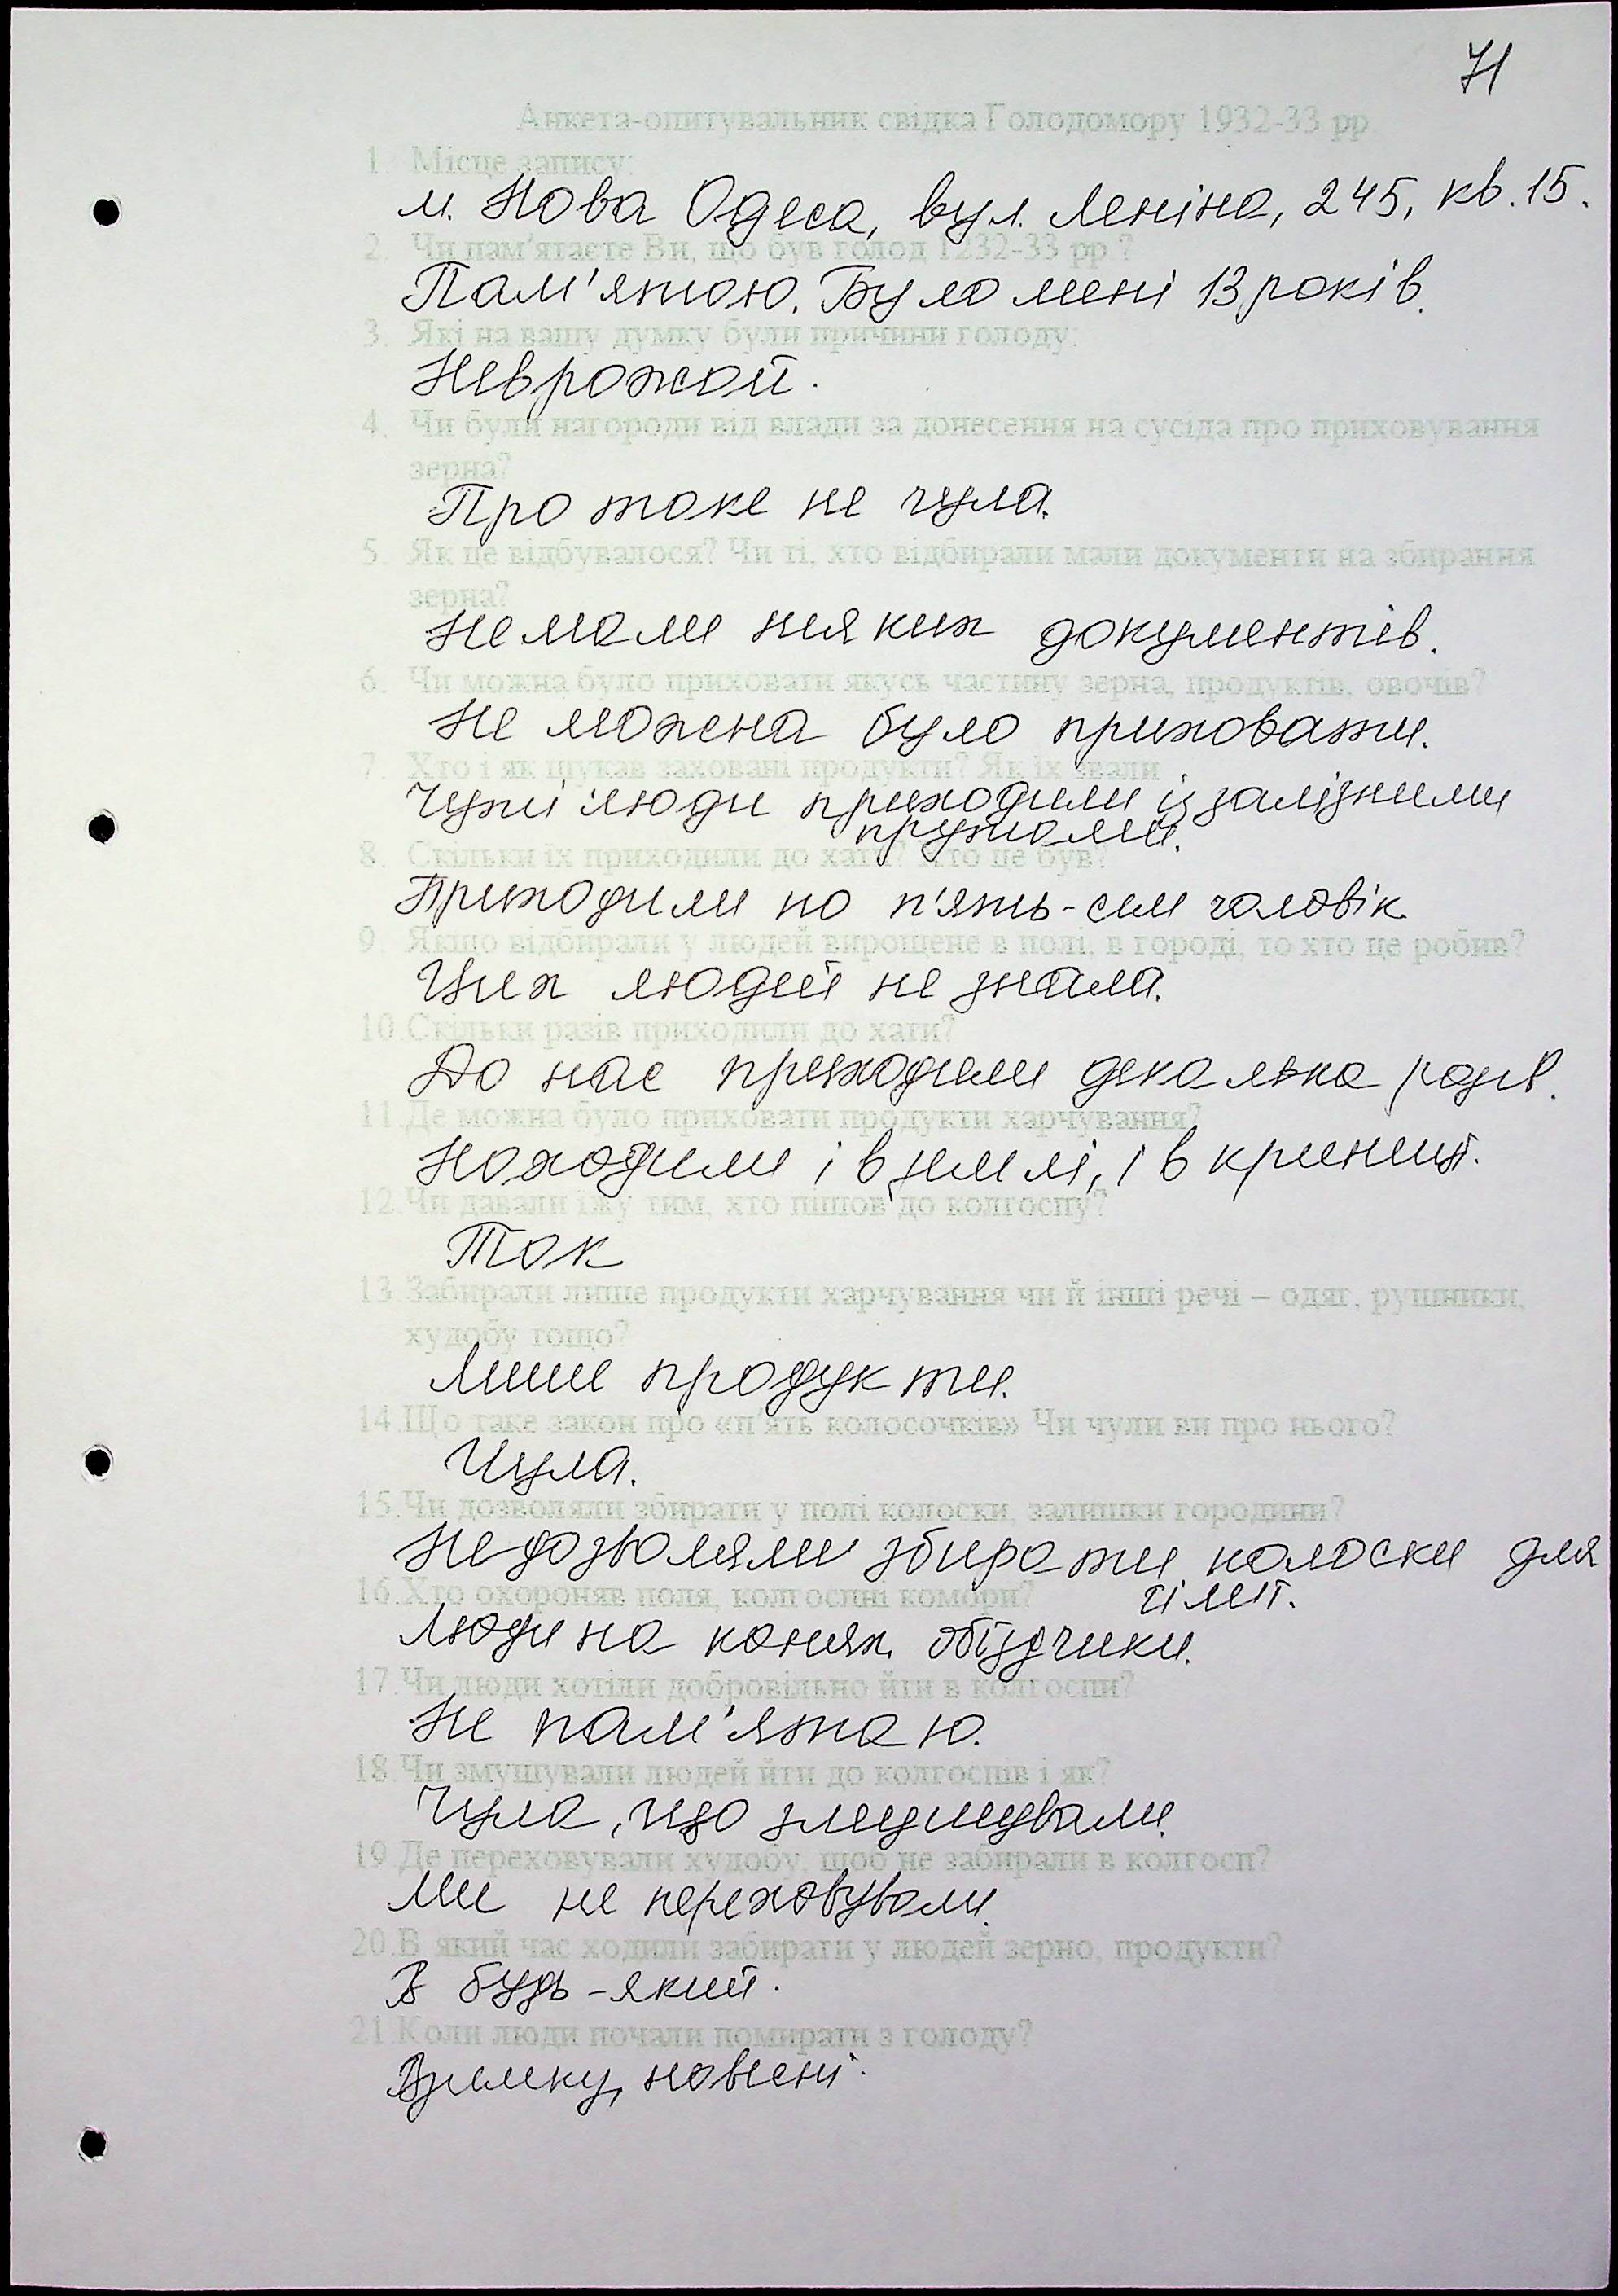 71
Анкета-опитувальник свідка Голодомору 1932-33 рр
1. Місце запису:
м. Нова Одеса, вул. Леніна, 245, кв. 15.
2. Чи пам'ятаєте Ви, що був голод 1232-33 рр ?
Пам'ятаю. Було мені 13 років.
3. Які на вашу думку були причини голоду:
Неврожай.
4. Чи були нагороди від влади за донесення на сусіда про приховування
зерна?
Про таке не чула.
5. Як це відбувалося? Чи ті, хто відбирали мали документи на збирання
зерна?
Не мали ніяких документів.
6. Чи можна було приховати якусь частину зерна, продуктів, овочів?
Не можна було приховати.
7. Хто і як шукав заховані продукти? Як їх звали
Чужі люди приходили із залізними
прутами.
8. Скільки їх приходили до хати? Хто це був?
Приходили по п'ять-сім чоловік
9. Якщо відбирали у людей вирощене в полі, в городі, то хто це робив?
Цих людей не знала.
10. Скільки разів приходили до хати?
До нас приходили декілька разів.
11. Де можна було приховати продукти харчування?
Находили і в землі, і в криниці.
12. Чи давали їжу тим, хто пішов до колгоспу?
Так
13. Забирали лише продукти харчування чи й інші речі – одяг, рушники,
худобу тощо?
Лише продукти.
14. Що таке закон про «п'ять колосочків» Чи чули ви про нього?
Чула.
15. Чи дозволяли збирати у полі колоски, залишки городини?
Не дозволяли збирати колоски для
16. Хто охороняв поля, колгоспні комори?
Люди на конях, обїздчики.
17. Чи люди хотіли добровільно йти в колгоспи?
Не пам'ятаю.
18. Чи змушували людей йти до колгоспів і як?
Чула, що змушували.
19. Де переховували худобу, щоб не забирали в колгосп?
Ми не переховували.
20. В який час ходили забирати у людей зерно, продукти?
В будь-який.
21. Коли люди почали помирати з голоду?
Взимку, навесні.